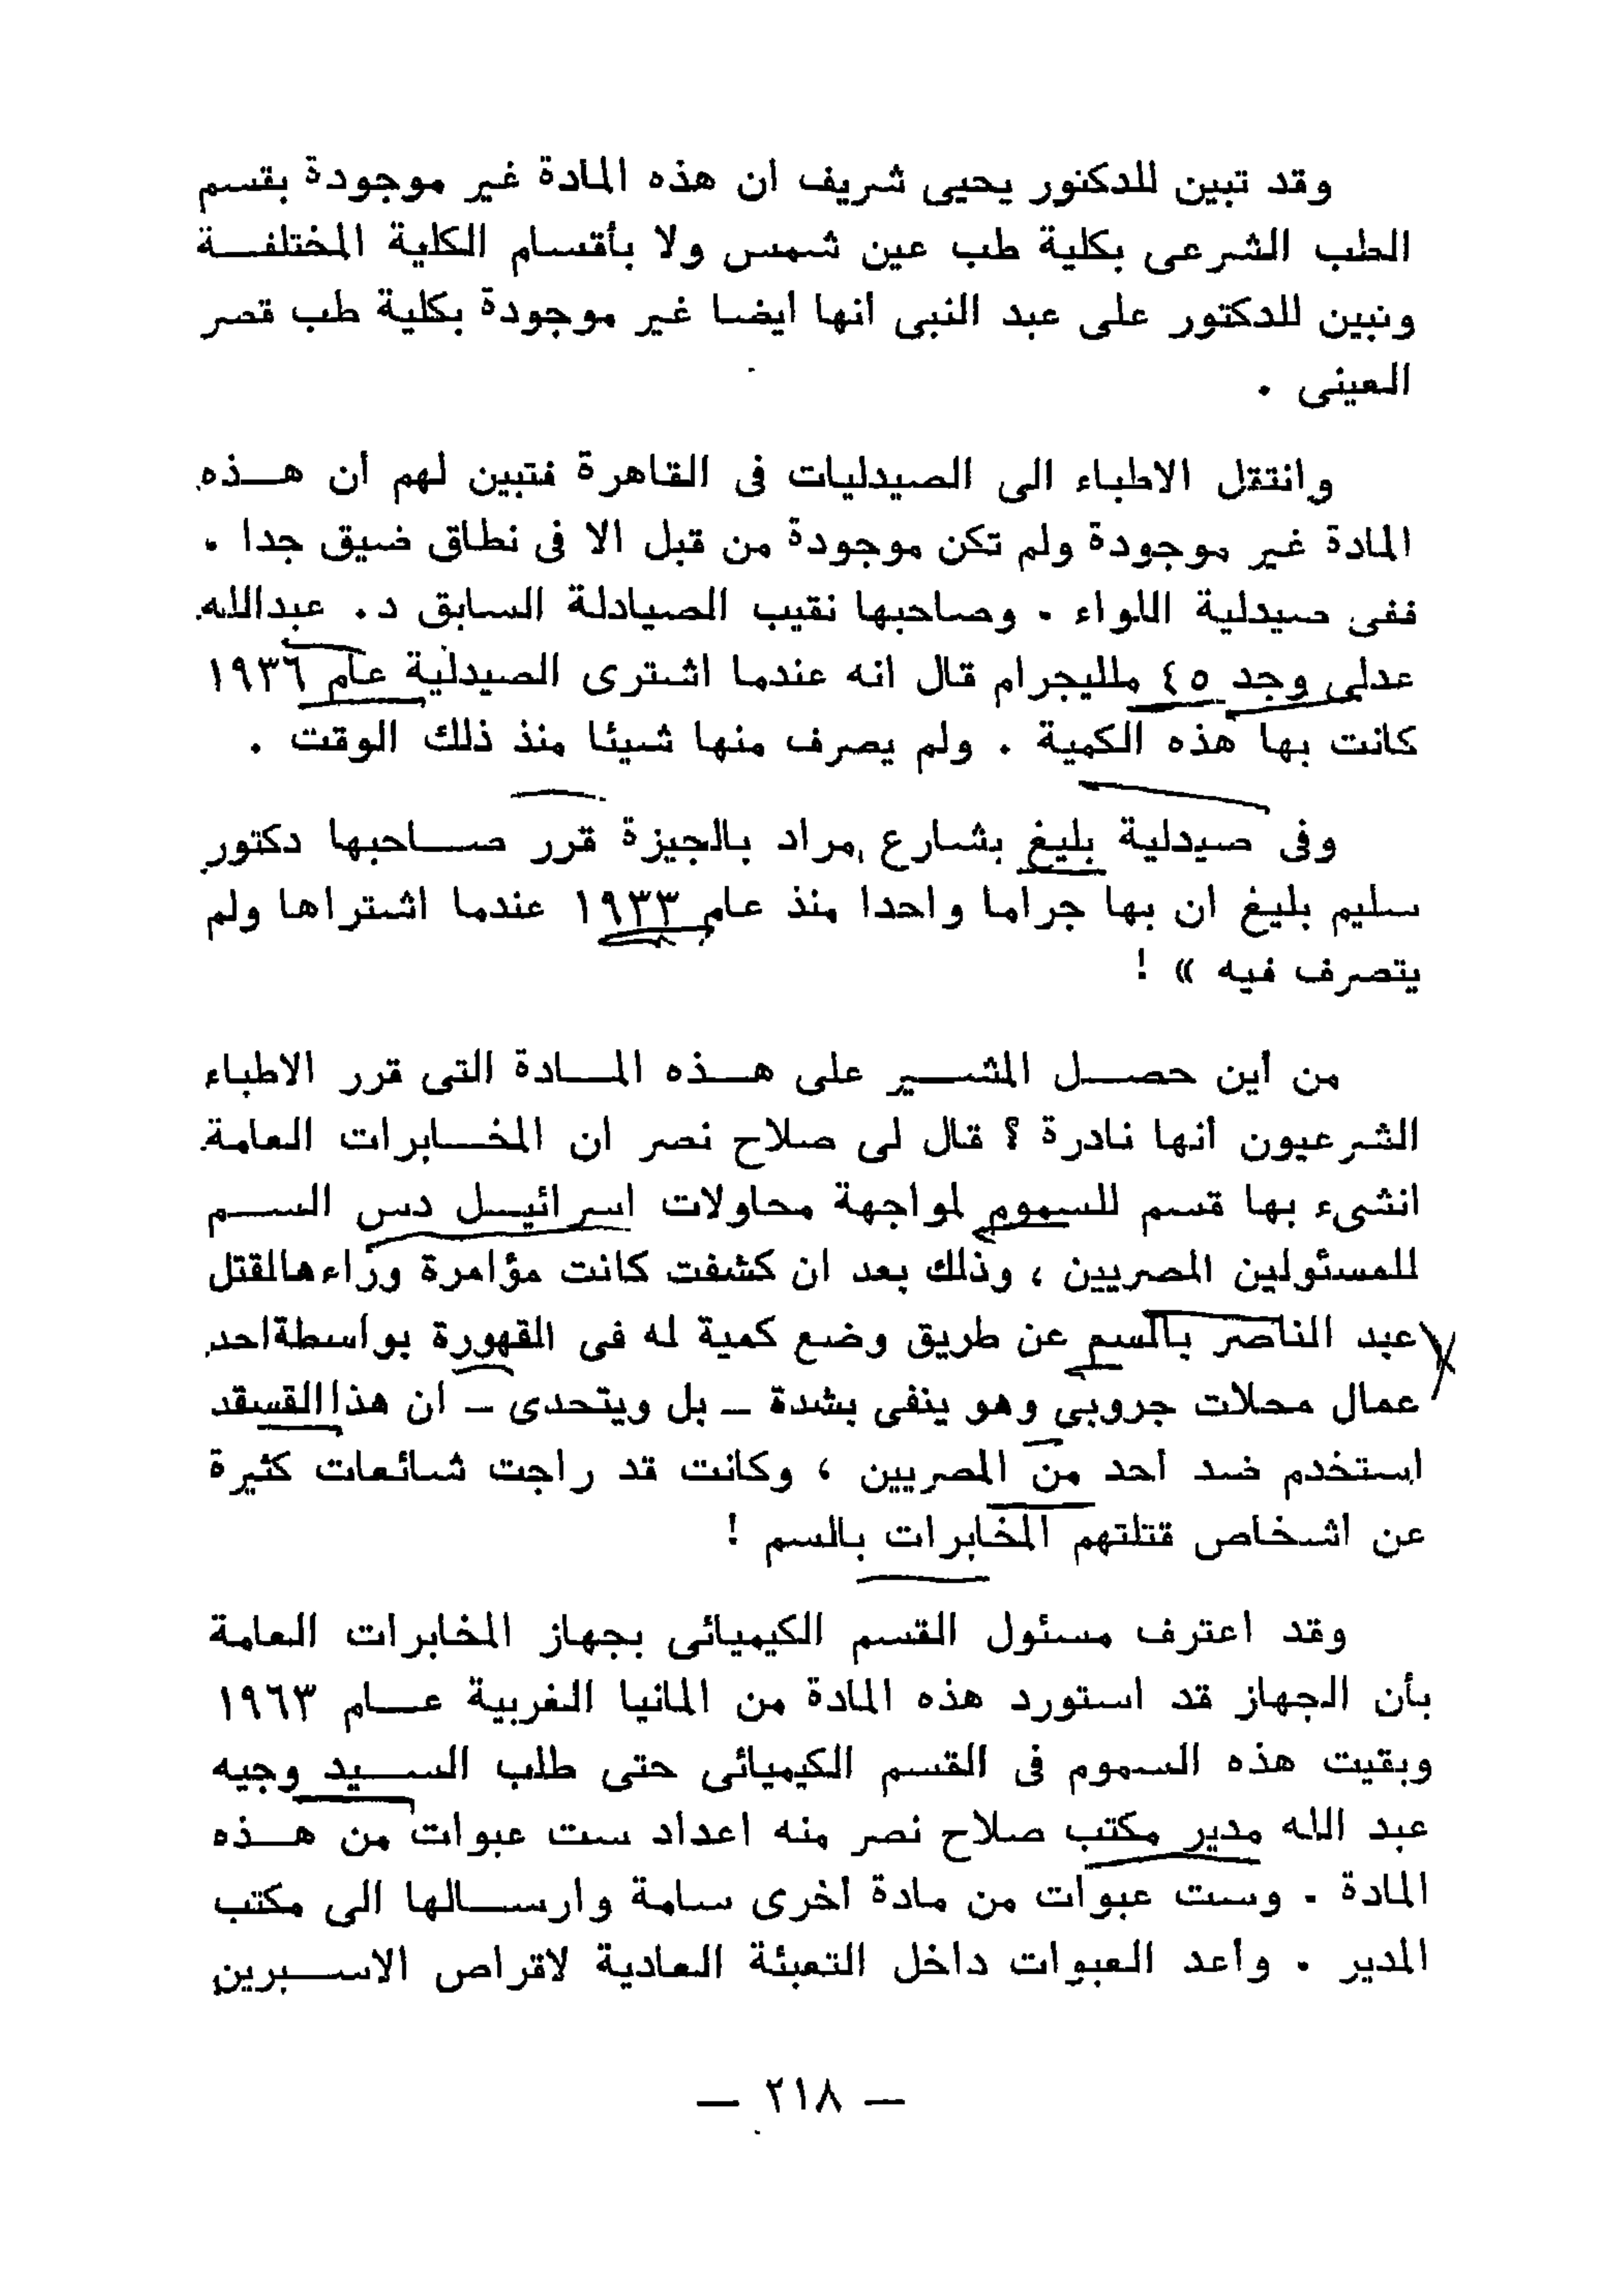 وقد تبين للدكنور يحيى شريف ان هذه المادة غير موجودة بقسم
الطب الشرعى بكلية طب عين شمس ولا بأقسام الكلية المختلفة
ونبين للدكتور على عبد النبى أنها أيضا غير موجودة بكلية طب قصر
العينى .
وانتقل الاطباء الى الصيدليات فى القاهرة فتبين لهم أن هذه
المادة غير موجودة ولم تكن موجودة من قبل الا فى نطاق ضيق جدا .
ففى صيدلية اللواء . وصاحبها نقيب الصيادلة السابق د. عبدالله
عدلى وجد ٤٥ ملليجرام قال انه عندما اشترى الصيدلية عام ١٩٣٦
كانت بها هذه الكمية . ولم يصرف منها شيئا منذ ذلك الوقت .
وفى صيدلية بليغ بشارع مراد بالجيزة قرر صاحبها دكتور
سليم بليغ ان بها جراما واحدا منذ عام ١٩٣٣ عندما اشتراها ولم
يتصرف فيه » !
من أين حصل المشير على هذه المادة التى قرر الاطباء
الشرعيون أنها نادرة ؟ قال لى صلاح نصر ان المخابرات العامة
انشىء بها قسم للسموم لمواجهة محاولات اسرائيل دس السم
للمسئولين المصريين ، وذلك بعد ان كشفت كانت مؤامرة وراءهالقتل
عبد الناصر بالسم عن طريق وضع كمية له فى القهورة بواسطةاحد
عمال محلات جروبى وهو ينفى بشدة – بل ويتحدى – ان هذاالقسقد
استخدم ضد أحد من المصريين ، وكانت قد راجت شائعات كثيرة
عن اشخاص قتلتهم المخابرات بالسم !
وقد اعترف مسئول القسم الكيميائى بجهاز المخابرات العامة
بأن الجهاز قد استورد هذه المادة من المانيا الغربية عام ١٩٦٣
وبقيت هذه السموم فى القسم الكيميائى حتى طلب السيد وجيه
عبد الله مدير مكتب صلاح نصر منه اعداد ست عبوات من هذه
المادة . وست عبوات من مادة أخرى سامة وارسالها الى مكتب
المدير . وأعد العبوات داخل التعبئة العادية لاقراص الاسبرين
— ٢١٨ —